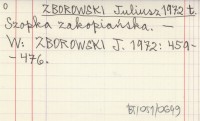 0
ZBOROWSKI Juliusz 1972 t.
Szopka zakopiańska. —
W: ZBOROWSKI J. 1972: 459-
-476.